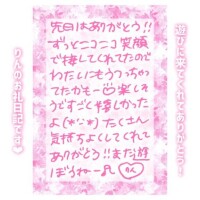 遊びに来てくれてありがとう!
先日はありがとう!!
ずっとニコニコ笑顔
で接してくれてたので
わたしにもうつっちゃ
てたかも〜♡楽し
うですごく嬉しかった
よ(*´˘`*)たくさん
気持ちよくしてくれて
ありがとう!!また遊
ぼうねー
りん
りんのお礼日記です♥